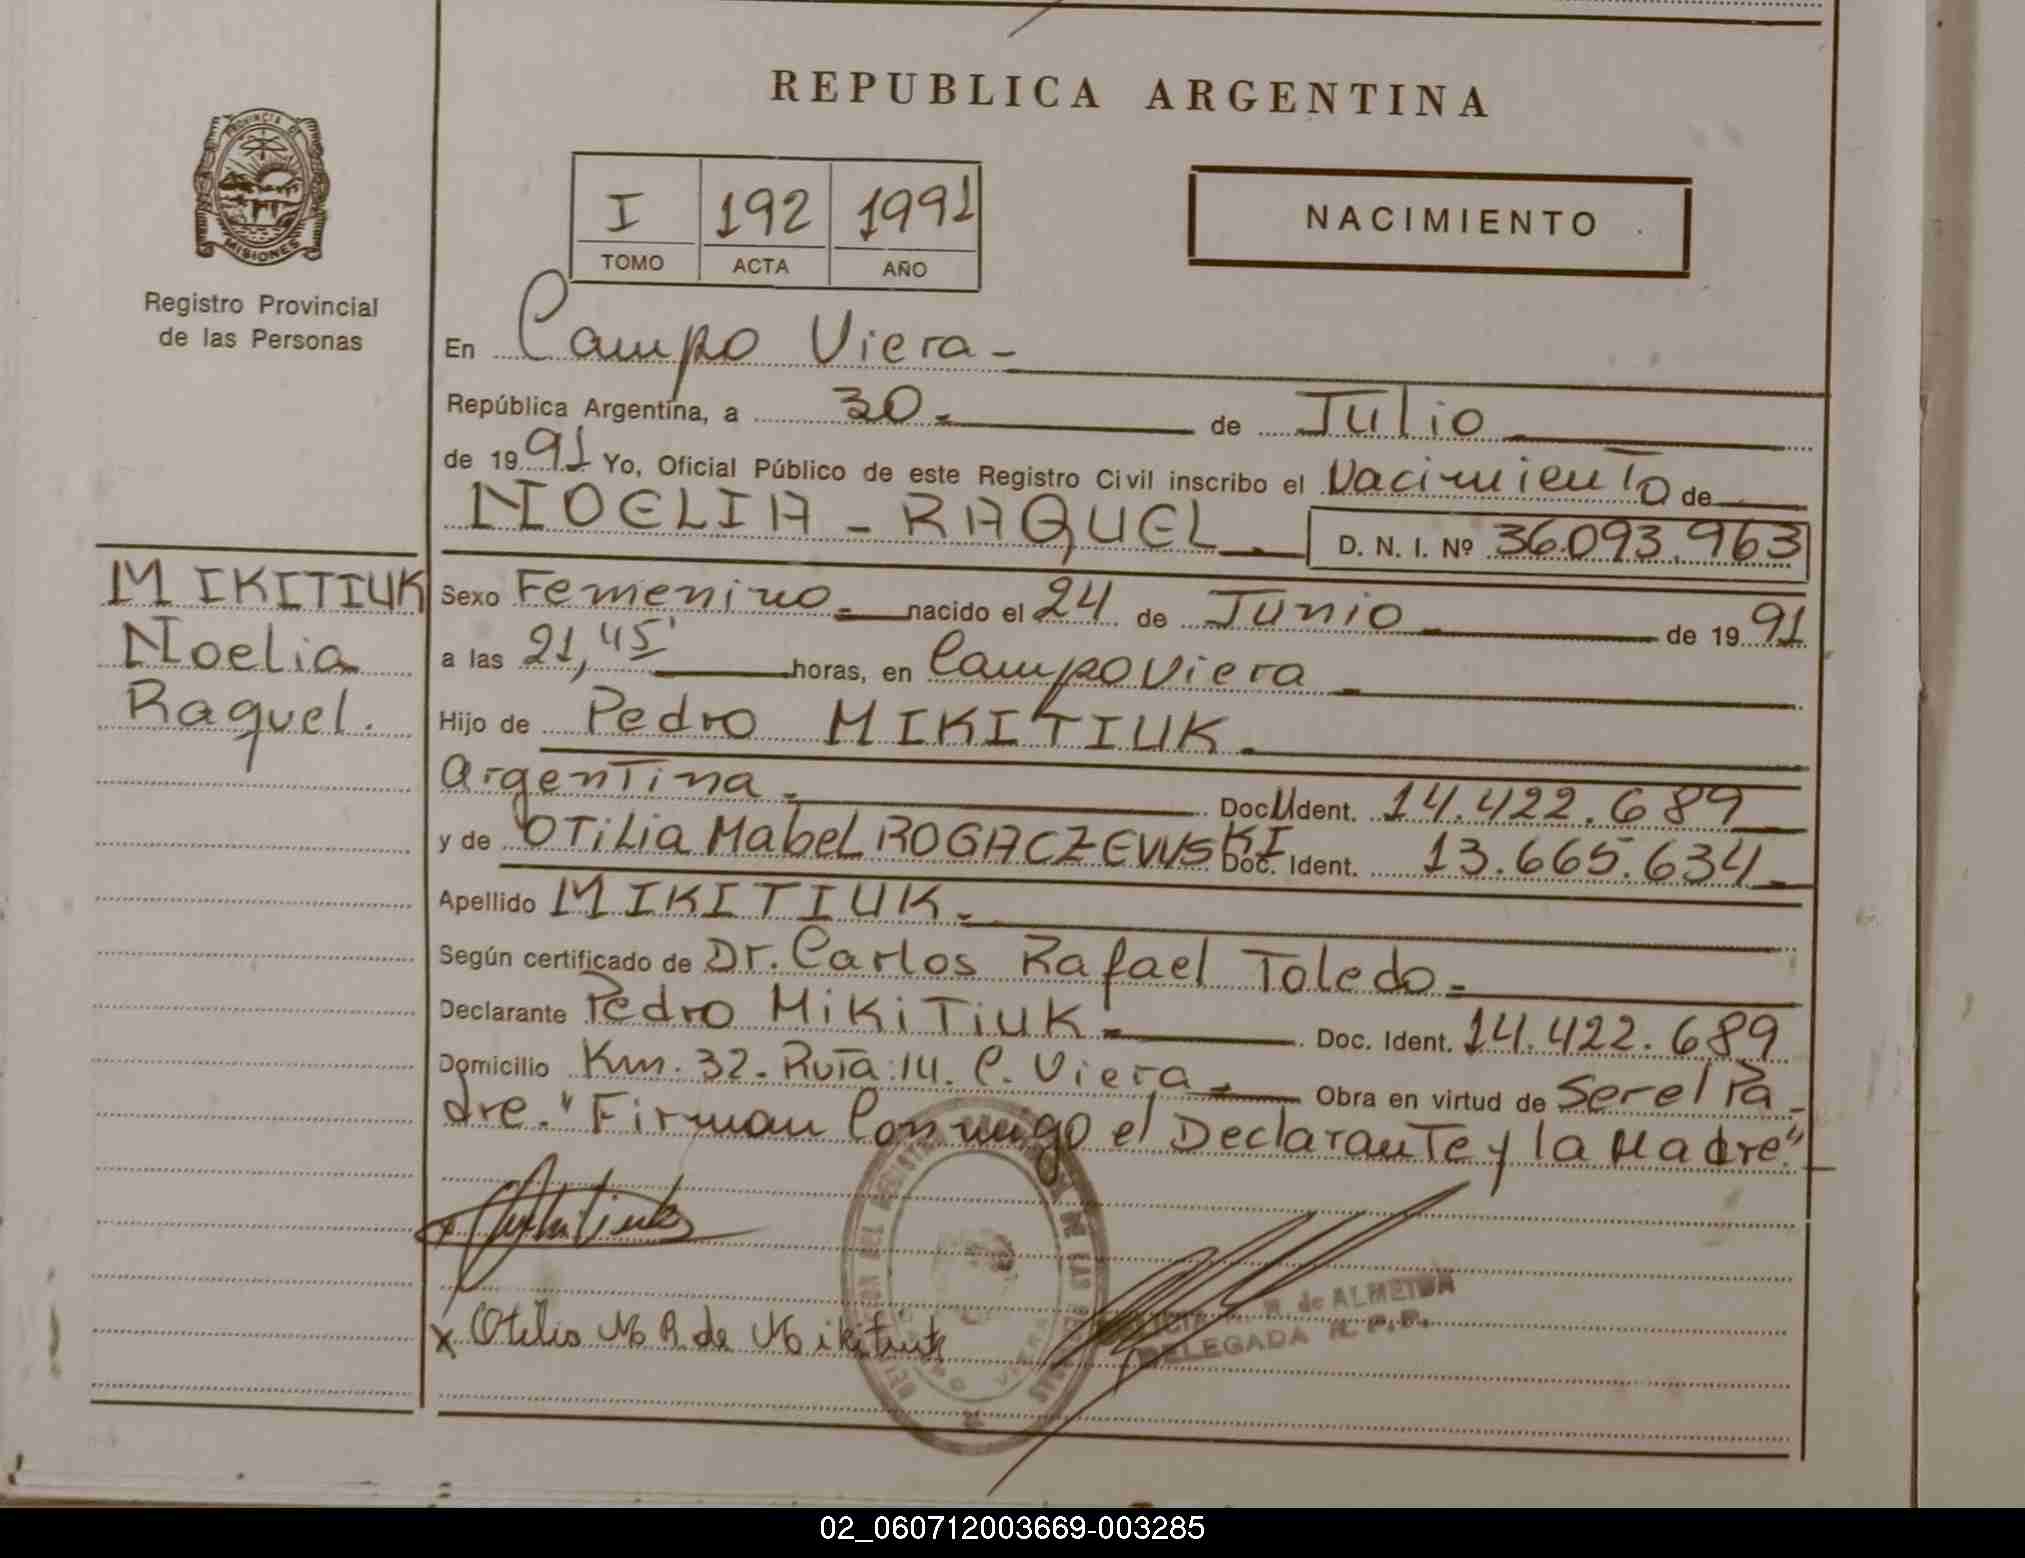 REPUBLICA ARGENTINA
PROVINCIA DE
MISIONES
Registro Provincial
de las Personas
I 192 1991
TOMO ACTA AÑO
NACIMIENTO
En Campo Viera -
República Argentina, a 30 - de Julio
de 1991 Yo, Oficial Público de este Registro Civil inscribo el Nacimiento de
NOELIA - RAQUEL D. N. I. Nº 36.093.963
MIKITIUK
Noelia
Raquel.
Sexo Femenino - nacido el 24 de Junio de 1991
a las 21,45' horas, en Campo Viera
Hijo de Pedro MIKITIUK.
Argentina - Doc. Ident. 14.422.689
y de OTILIA Mabel ROGACZEWSKI Doc. Ident. 13.665.634
Apellido MIKITIUK.
Según certificado de Dr. Carlos Rafael Toledo -
Declarante Pedro MIKITIUK - Doc. Ident. 14.422.689
Domicilio Km. 32 - Ruta: 14. C. Viera - Obra en virtud de Ser el Pa-
dre. "Firman Conmigo el Declarante y la Madre"
x Mikitiuk
x Otilia M R. de Mikitiuk
R. de ALMEIDA
DELEGADA R. P. P.
02_060712003669-003285